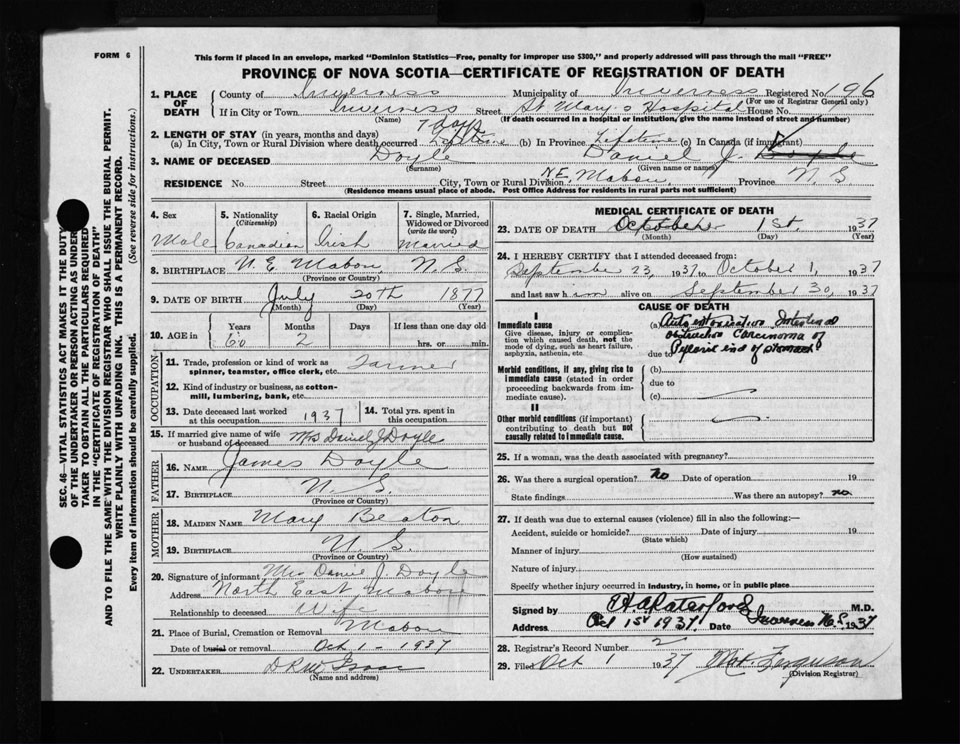 FORM 6
This form if placed in an envelope, marked "Dominion Statistics—Free, penalty for improper use $300," and properly addressed will pass through the mail "FREE"
PROVINCE OF NOVA SCOTIA—CERTIFICATE OF REGISTRATION OF DEATH
SEC. 46—VITAL STATISTICS ACT MAKES IT THE DUTY
OF THE UNDERTAKER OR PERSON ACTING AS UNDER-
TAKER TO OBTAIN ALL THE PARTICULARS REQUIRED
IN THE "CERTIFICATE OF REGISTRATION OF DEATH"
AND TO FILE THE SAME WITH THE DIVISION REGISTRAR WHO SHALL ISSUE THE BURIAL PERMIT.
WRITE PLAINLY WITH UNFADING INK. THIS IS A PERMANENT RECORD.
Every item of information should be carefully supplied. (See reverse side for instructions.)
1. PLACE OF DEATH
County of Inverness Municipality of Inverness Registered No. 196
(For use of Registrar General only)
If in City or Town Inverness Street St Mary's Hospital House No.
(Name) (If death occurred in a hospital or institution, give the name instead of street and number)
2. LENGTH OF STAY (in years, months and days) 7 days
(a) In City, Town or Rural Division where death occurred Lifetime (b) In Province Lifetime (c) In Canada (if immigrant)
3. NAME OF DECEASED Doyle Daniel J.
(Surname) (Given name or names)
RESIDENCE No. Street City, Town or Rural Division N.E. Mabou Province N.S.
(Residence means usual place of abode. Post Office Address for residents in rural parts not sufficient)
4. Sex
Male
5. Nationality
(Citizenship)
Canadian
6. Racial Origin
Irish
7. Single, Married, Widowed or Divorced
(write the word)
Married
8. BIRTHPLACE N. E. Mabou, N. S.
(Province or Country)
9. DATE OF BIRTH July 20th 1877
(Month) (Day) (Year)
10. AGE in Years Months Days If less than one day old
60 2 hrs. or min.
OCCUPATION
11. Trade, profession or kind of work as spinner, teamster, office clerk, etc. Farmer
12. Kind of industry or business, as cotton-mill, lumbering, bank, etc.
13. Date deceased last worked at this occupation 1937
14. Total yrs. spent in this occupation
15. If married give name of wife or husband of deceased Mrs Daniel J Doyle
FATHER
16. NAME James Doyle
17. BIRTHPLACE N. S.
(Province or Country)
MOTHER
18. MAIDEN NAME Mary Beaton
19. BIRTHPLACE N. S.
(Province or Country)
20. Signature of informant Mrs Daniel J. Doyle
Address North East Mabou
Relationship to deceased Wife
21. Place of Burial, Cremation or Removal Mabou
Date of burial or removal Oct 1 - 1937
22. UNDERTAKER
(Name and address)
MEDICAL CERTIFICATE OF DEATH
23. DATE OF DEATH October 1st, 1937
(Month) (Day) (Year)
24. I HEREBY CERTIFY that I attended deceased from:
September 23, 1937 to October 1, 1937
and last saw him alive on September 30, 1937
CAUSE OF DEATH
I
Immediate cause
Give disease, injury or complication which caused death, not the mode of dying, such as heart failure, asphyxia, asthenia, etc
(a) Auto intoxication Intestinal
obstruction Carcinoma of
due to Pyloric end of stomach
Morbid conditions, if any, giving rise to immediate cause (stated in order proceeding backwards from immediate cause).
(b)
due to
(c)
II
Other morbid conditions (if important) contributing to death but not causally related to immediate cause.
25. If a woman, was the death associated with pregnancy?
26. Was there a surgical operation? no Date of operation 19
State findings Was there an autopsy? no
27. If death was due to external causes (violence) fill in also the following:—
Accident, suicide or homicide? Date of injury 19
(State which)
Manner of injury
(How sustained)
Nature of injury
Specify whether injury occurred in industry, in home, or in public place
Signed by H A Ratchford M.D.
Address Oct 1st 1937 Date Inverness N.S. 1937
28. Registrar's Record Number 2
29. Filed Oct 1 1937 Ferguson
(Division Registrar)